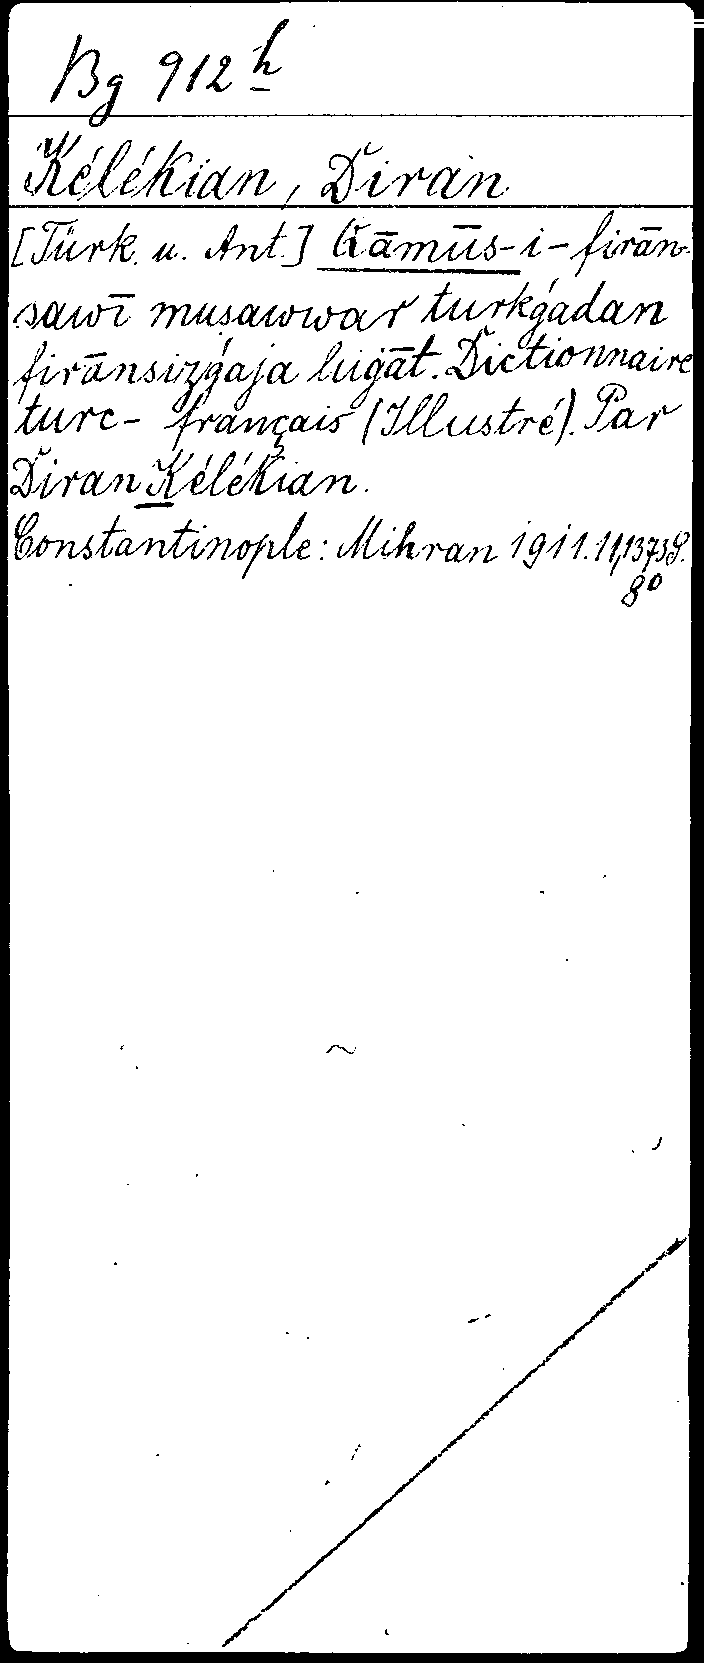 Bg 912 h
Kélékian, Diran
[Türk. u. Ant.] Ḳāmūs-i-firān-
sawī muṣawwar turkǵadan
firānsizǵaja luġāt. Dictionnaire
turc-français (Illustré). Par
Diran Kélékian.
Constantinople: Mihran 1911. 11,1373 S.
8°